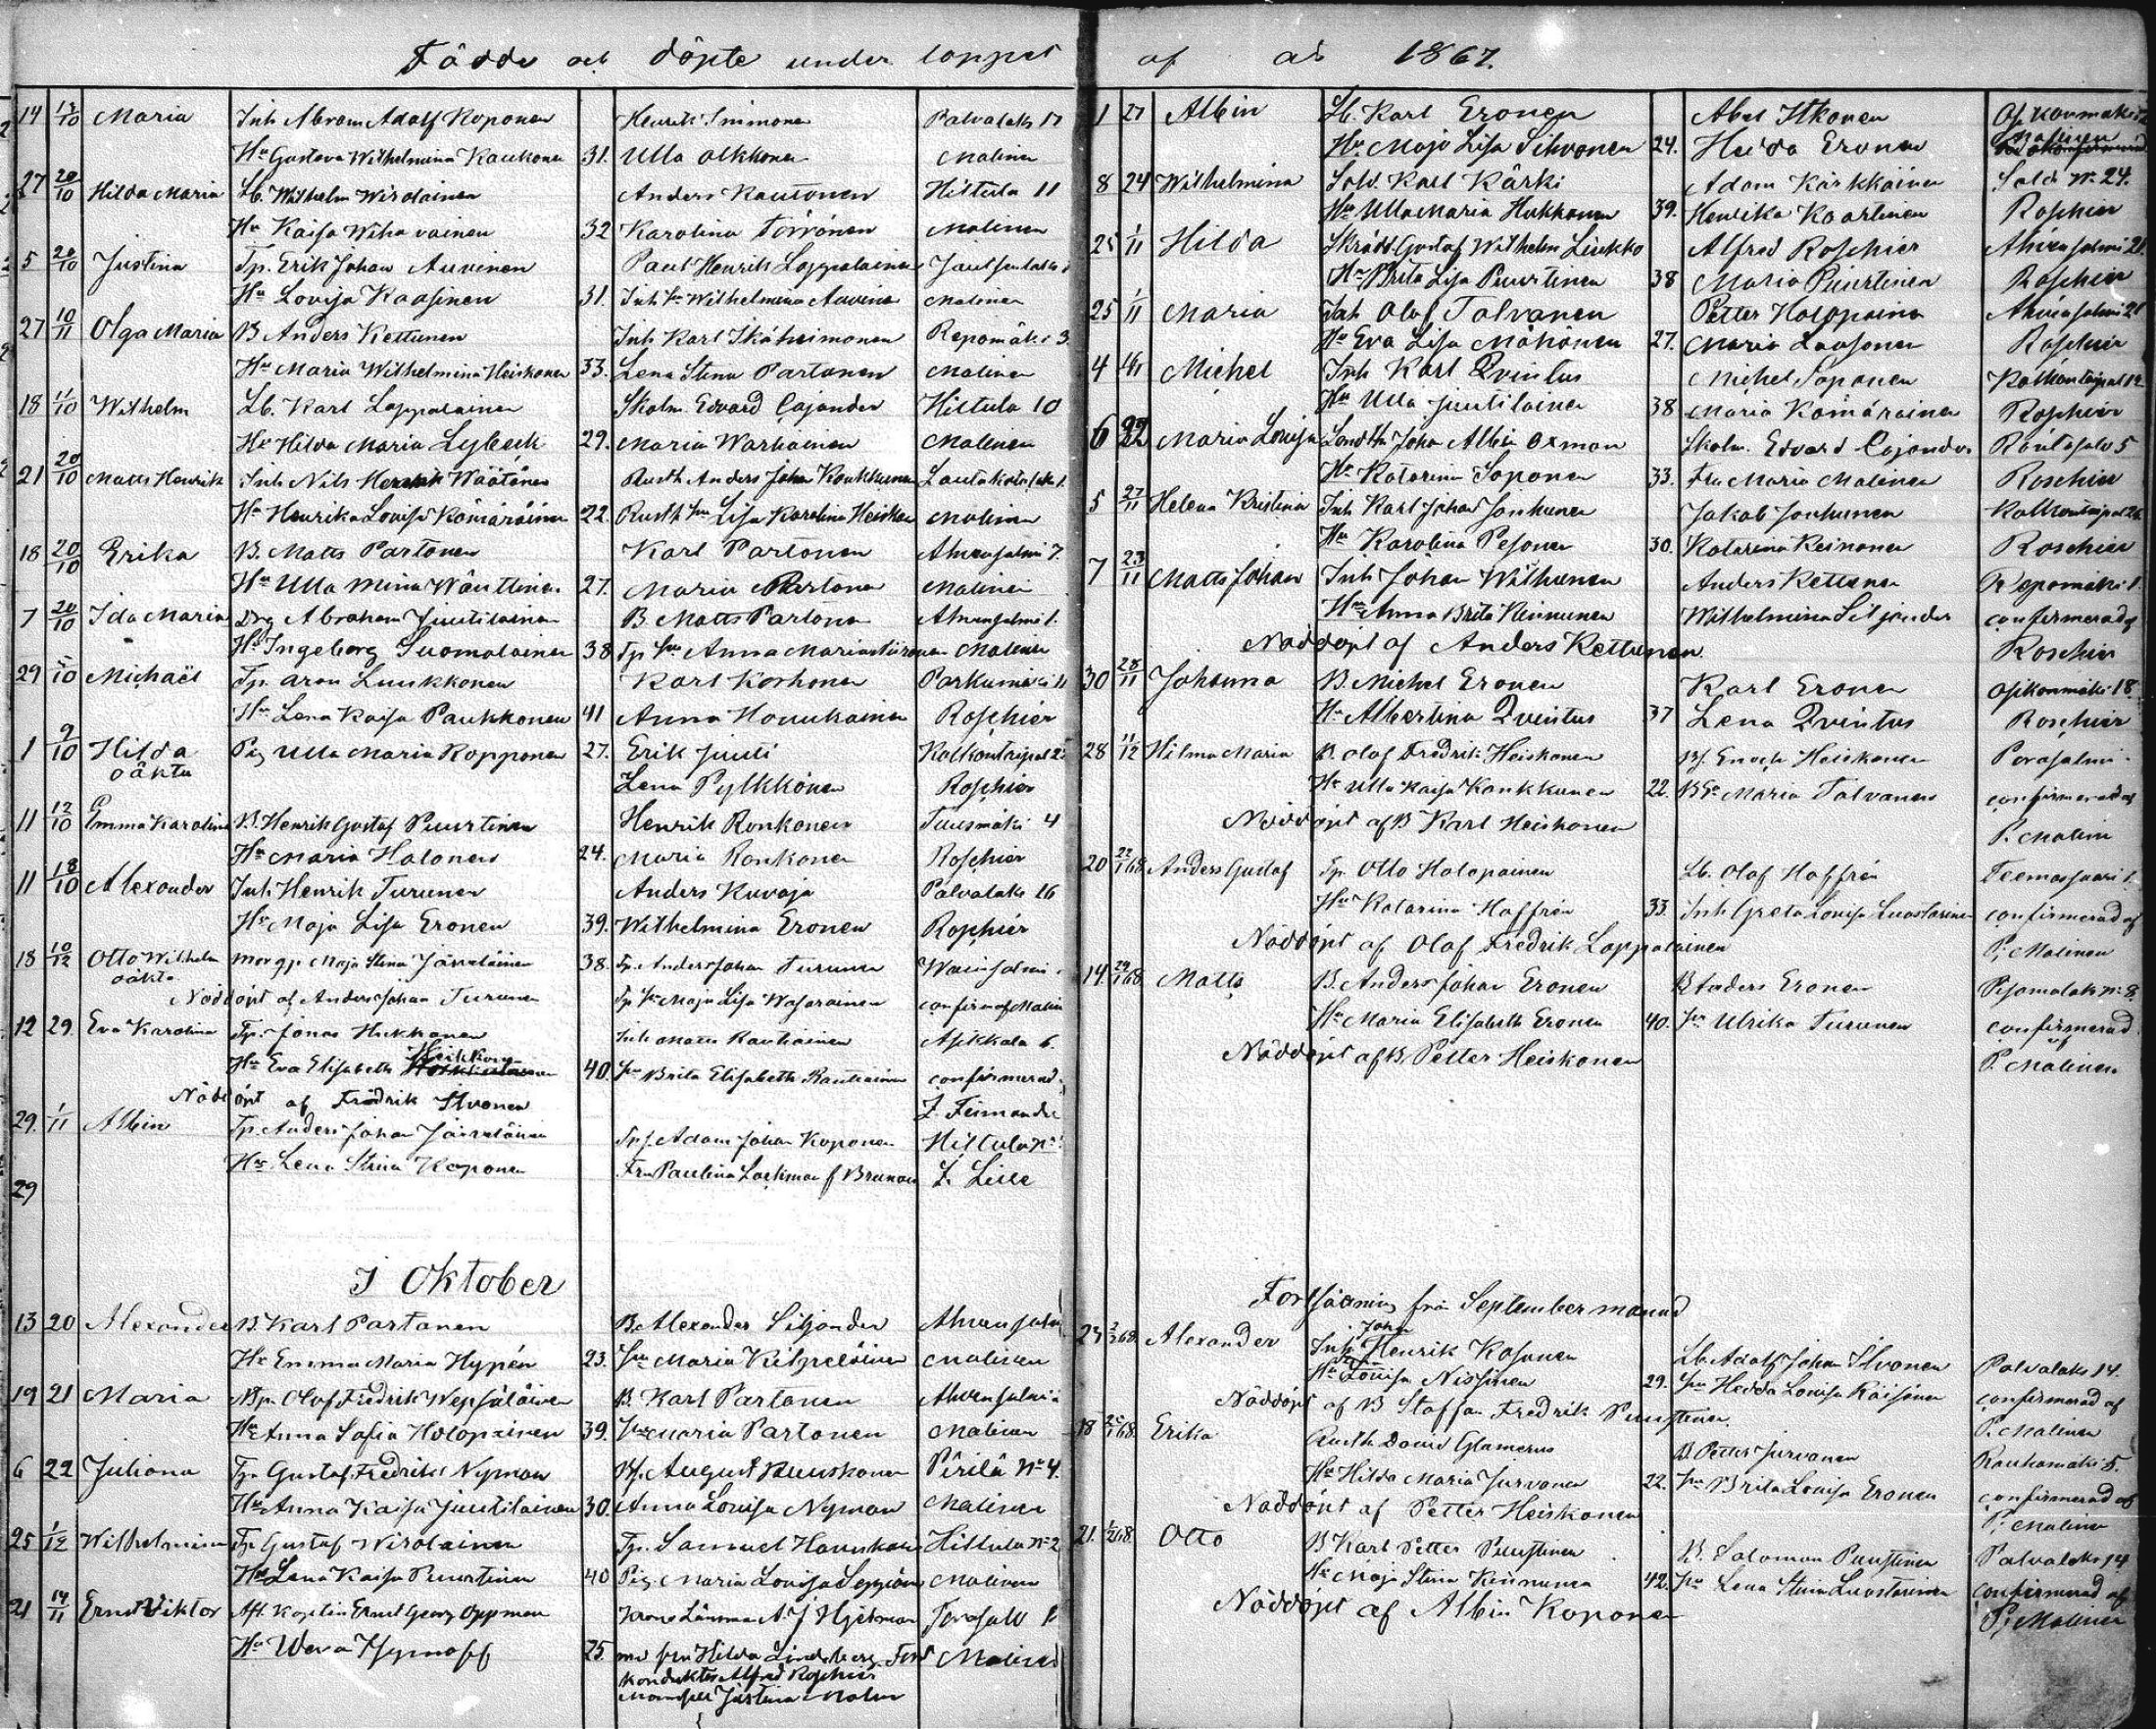 Födde och döpte under loppet
14 13/10 Maria Inh Abram Adolf Koponen Henrik Simonen Palvalaks 17
Hu Gustava Wilhelmina Kaukonen 31. Ulla Olkkonen Malinen
27 20/10 Hilda Maria Lb. Wilhelm Wirolainen Anders Kautonen Hiltula 11
Hu Kaisa Wihavainen 32 Karolina Törrönen Malinen
5 20/10 Justina Tp. Erik Johan Auvinen Paul Henrik Loppalainen
Hu Lovisa Kaasinen 31. Inh hu Wilhelmina Auvinen Malinen
27 10/11 Olga Maria B Anders Kettunen Inh Karl Ikäheimonen Repomäki 3
Hu Maria Wilhelmina Heiskonen 33. Lena Stina Partanen Malinen
18 11/10 Wilhelm Lb. Karl Loppalainen Skolm. Edvard Cajander Hiltula 10
Hu Hilda Maria Lybeck 29. Maria Warhainen Malinen
21 20/10 Matts Henrik Inh Nils Henrik Wäätänen Rusth Anders Johan Kaukkunen
Hu Henrika Lovisa Kämäräinen 22. Rusth hu Lisa Karolina Heiskanen Malinen
18 20/10 Erika B. Matts Partanen Karl Partanen Ahvensalmi 7.
Hu Ulla Mina Wänttinen 27. Maria Partanen Malinen
7 20/10 Ida Maria Drg Abraham Juutilainen B. Matts Partanen Ahvensalmi 1.
Hu Ingeborg Suomalainen 38 Tp hu Anna Maria Malinen
29 5/10 Michael Tp. Aron Luukkonen Karl Korhonen Parkumäki 11
Hu Lena Kaisa Paukkonen 41 Anna Houukainen Roschier
1 9/10 Hilda Pig Ulla Maria Kopponen 27. Erik Juuti Kalkontaipal 2
oäkta Lena Pylkkönen Roschier
11 12/10 Emma Karolina B. Henrik Gustaf Puurtinen Henrik Ronkonen Tuusmäki 4
Hu Maria Halonen 24. Maria Ronkonen Roschier
11 18/10 Alexander Inh. Henrik Turunen Anders Kuvaja Palvalaks 16
Hu Maja Lisa Eronen 39. Wilhelmina Eronen Roschier
18 10/12 Otto Wilhelm Maja Stina Järveläinen 38. Tp. Anders Johan Turunen
oäkta
Nöddöpt af Anders Johan Turunen Tp hu Maja Lisa Wasarainen confirm af Malin
12 29. Eva Karolina Tp. Jonas Hukkanen Inh Matts Rautiainen Asikkala 6.
Hu Eva Elisabeth 40. hu Brita Elisabeth Rautiainen confirmerad
Nöddöpt af Fredrik Ilvonen
29. 1/11 Albin Tp. Anders Johan Järveläinen Adam Johan Koponen Hiltula
Hu Lena Stina Koponen Fru Paulina
29
I Oktober
13 20 Alexander B. Karl Partanen B. Alexander Siljander
Hu Emma Maria Hypén 23. hu Maria Kilpeläinen Malinen
19 21 Maria Olof Fredrik Wepsäläinen B. Karl Partanen
Hu Anna Sofia Holopainen 39. hu Maria Partanen Malinen
6 22 Juliana Tp. Gustaf Fredrik Nyman August Ruuskonen Pirilä No 4.
Hu Anna Kaisa Juutilainen 30. Anna Lovisa Nyman Malinen
25 1/12 Wilhelmina Tp Gustaf Wirolainen Tp. Samuel Hiltula No 2
Hu Lena Kaisa Puurtinen 40 Pig. Maria Lovisa Malinen
21 14/11 Ernst Viktor Ernst Georg Oppman Krono Länsman
Hu Wera 25. Hilda Lindeberg Malinen
Alfred Roschier
Justina
af år 1867.
1 27 Albin Lb. Karl Eronen Abel Itkonen
Hu Maja Lisa Silvonen 24. Heda Eronen
8 24 Wilhelmina Sold. Karl Kärki Adam Kärkkäinen Sold No. 24.
Hu Ulla Maria Hukkonen 39. Henrika Kaartinen Roschier
25 1/11 Hilda Skrädd. Gustaf Wilhelm Liukko Alfred Roschier Ahvensalmi
Hu Brita Lisa Puurtinen 38 Maria Puurtinen Roschier
25 1/11 Maria Inh Olof Talvanen Petter Holopainen Ahvensalmi 21
Hu Eva Lisa Mähönen 27. Maria Laasonen Roschier
4 Michel Inh Karl Qvintus Michel Soponen Kalkontaipal
Hu Ulla Juutilainen 38 Maria Kämäräinen Roschier
6 22 Maria Lovisa Johan Albin Oxman Skolm. Edvard Cajander 5
Hu Katarina Soponen 33. Fru Maria Malinen Roschier
5 27/11 Helena Kristina Inh Karl Johan Jouhunen Jakob Jouhunen
Hu Karolina Pesonen 30. Katarina Keinonen Roschier
7 23/11 Matts Johan Inh Johan Wilhunen Anders Kettunen Repomäki 1.
Hu Anna Brita Kinnunen Wilhelmina Siljander confirmerad
Nöddöpt af Anders Kettunen Roschier
30 28/11 Johanna B. Michel Eronen Karl Eronen Asikonmäki 18
Hu Albertina Qvintus 37 Lena Qvintus Roschier
28 11/12 Hilma Maria B. Olof Fredrik Heiskanen Enoch Heiskanen Porasalmi
Hu Ulla Kaisa Kaukkunen 22. Maria Talvanen confirmerad af
Nöddöpt af B Karl Heiskonen P. Malin
20 22/1 68 Anders Gustaf Tp Otto Holopainen Lb. Olof Hoffrén Teemassaari 1.
Hu Katarina Hoffrén 33. Inh Greta Lovisa Luostarinen confirmerad af
Nöddöpt af Olof Fredrik Loppalainen P. Malinen
14. 29/1 68 Matts B. Anders Johan Eronen B Anders Eronen Pesomalaks no 8.
Hu Maria Elisabeth Eronen 40. hu Ulrika Turunen confirmerad af
Nöddöpt af B Petter Heiskonen P. Malinen
Fortsättning från September månad
Alexander Inh. Johan Henrik Kosonen Lb. Adolf Johan Ilvonen Palvalaks 14.
Hu Lovisa Nissinen 29. hu Hedda Lovisa Räisänen confirmerad af
Nöddöpt af B Staffan Fredrik Puustinen P. Malinen
18 Erika Rusth David Glamerus B Petter Jurvanen 5.
Hu Hilda Maria Jurvanen 22. hu Brita Lovisa Eronen confirmerad af
Nöddöpt af Petter Heiskonen P. Malinen
21. Otto B Karl Petter Puustinen B. Salomon Puustinen Palvalaks 14
Hu Maja Stina Kinnunen 42. hu Lena Stina Luostarinen confirmerad af
Nöddöpt af Albin Koponen P. Malinen